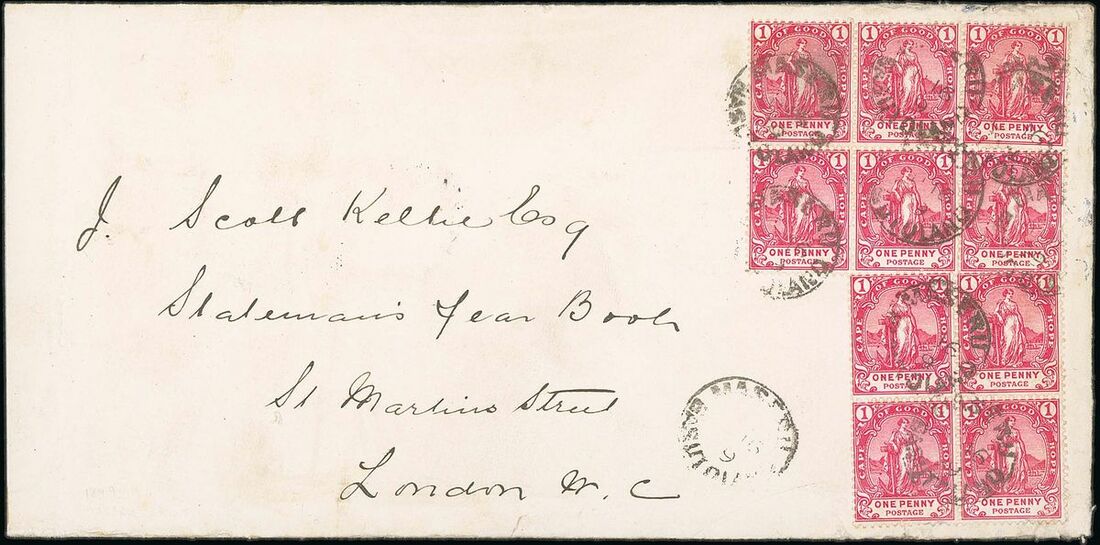 1 OF GOOD 1 1 OF GOOD 1 1 OF GOOD 1
CAPE HOPE CAPE HOPE CAPE HOPE
ONE PENNY ONE PENNY ONE PENNY
POSTAGE POSTAGE POSTAGE
1 OF GOOD 1 1 OF GOOD 1 1 OF GOOD 1
CAPE HOPE CAPE HOPE CAPE HOPE
ONE PENNY ONE PENNY ONE PENNY
POSTAGE POSTAGE POSTAGE
J. Scott Keltie Esq
Statesman's Year Book
St Martins Street
London W. C
1 OF GOOD 1 1 OF GOOD 1
CAPE HOPE CAPE HOPE
ONE PENNY ONE PENNY
POSTAGE POSTAGE
1 OF GOOD 1 1 OF GOOD 1
CAPE HOPE CAPE HOPE
ONE PENNY ONE PENNY
POSTAGE POSTAGE
MASERU